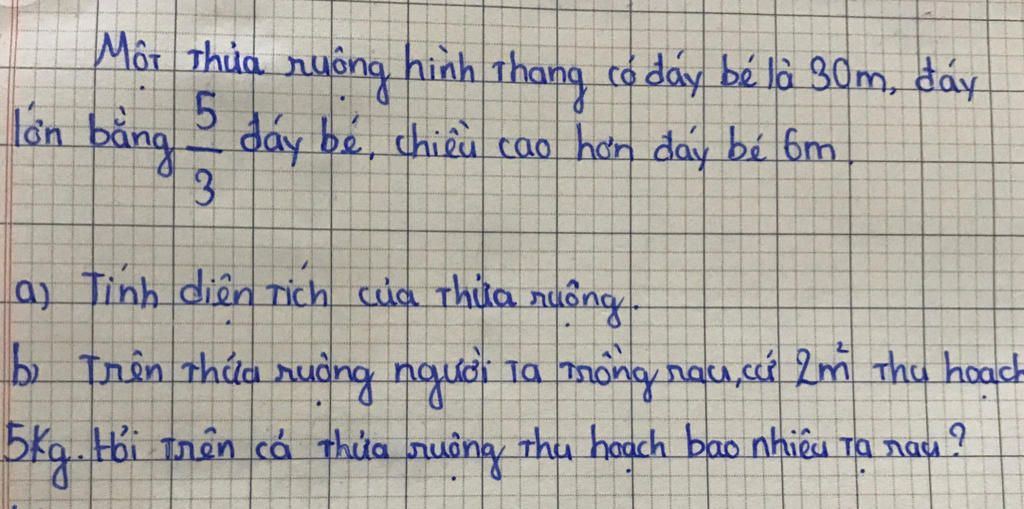 Một thửa ruộng hình thang có đáy bé là 30m, đáy
lớn bằng 5/3 đáy bé, chiều cao hơn đáy bé 6m.
a) Tính diện tích của thửa ruộng.
b) Trên thửa ruộng người ta trồng rau, cứ 2m² thu hoạch
5kg. Hỏi trên cả thửa ruộng thu hoạch bao nhiêu tạ rau?